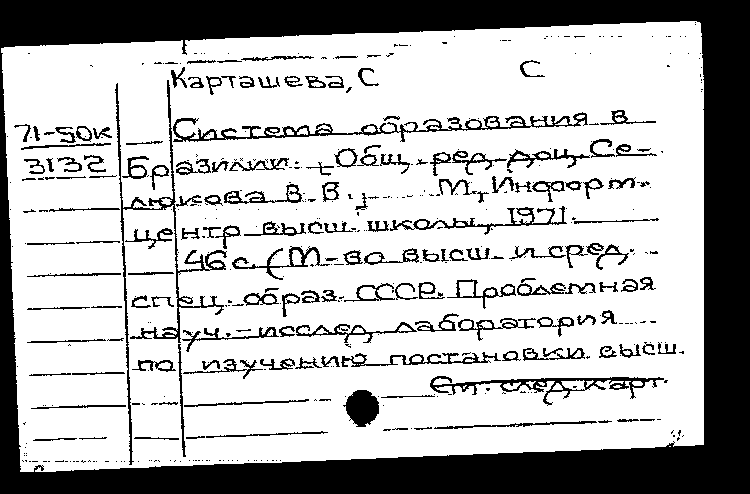 Карташева, С С
71-50к Система образования в
3132 Бразилии. [Общ. ред. доц. Се-
люкова В.В.] М., Информ.
центр высш. школы, 1971.
46 с. (М-во высш. и сред.
спец. образ. СССР. Проблемная
науч.-исслед. лаборатория
по изучению постановки высш.
См. след. карт.